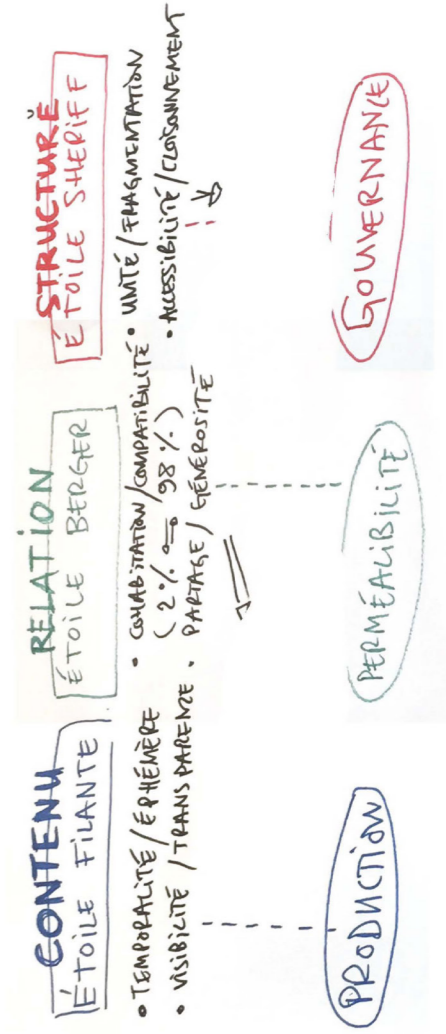 CONTENU
ÉTOILE FILANTE
• TEMPORALITÉ / ÉPHÉMÈRE
• VISIBILITÉ / TRANSPARENCE
PRODUCTION
RELATION
ÉTOILE BERGER
• COHABITATION/COMPATIBILITÉ
(2% ⇆ 98%)
• PARTAGE / GÉNÉROSITÉ
PERMÉALIBILITÉ
STRUCTURE
ÉTOILE SHERIFF
• UNITÉ / FRAGMENTATION
• ACCESSIBILITÉ / CLOISONNEMENT
GOUVERNANCE